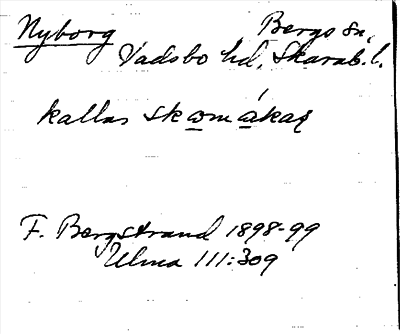 Nyborg Bergs sn,
Vadsbo hd, Skarab. l.
kallas skomákaṛ
F. Bergstrand 1898-99
Ulma 111:309